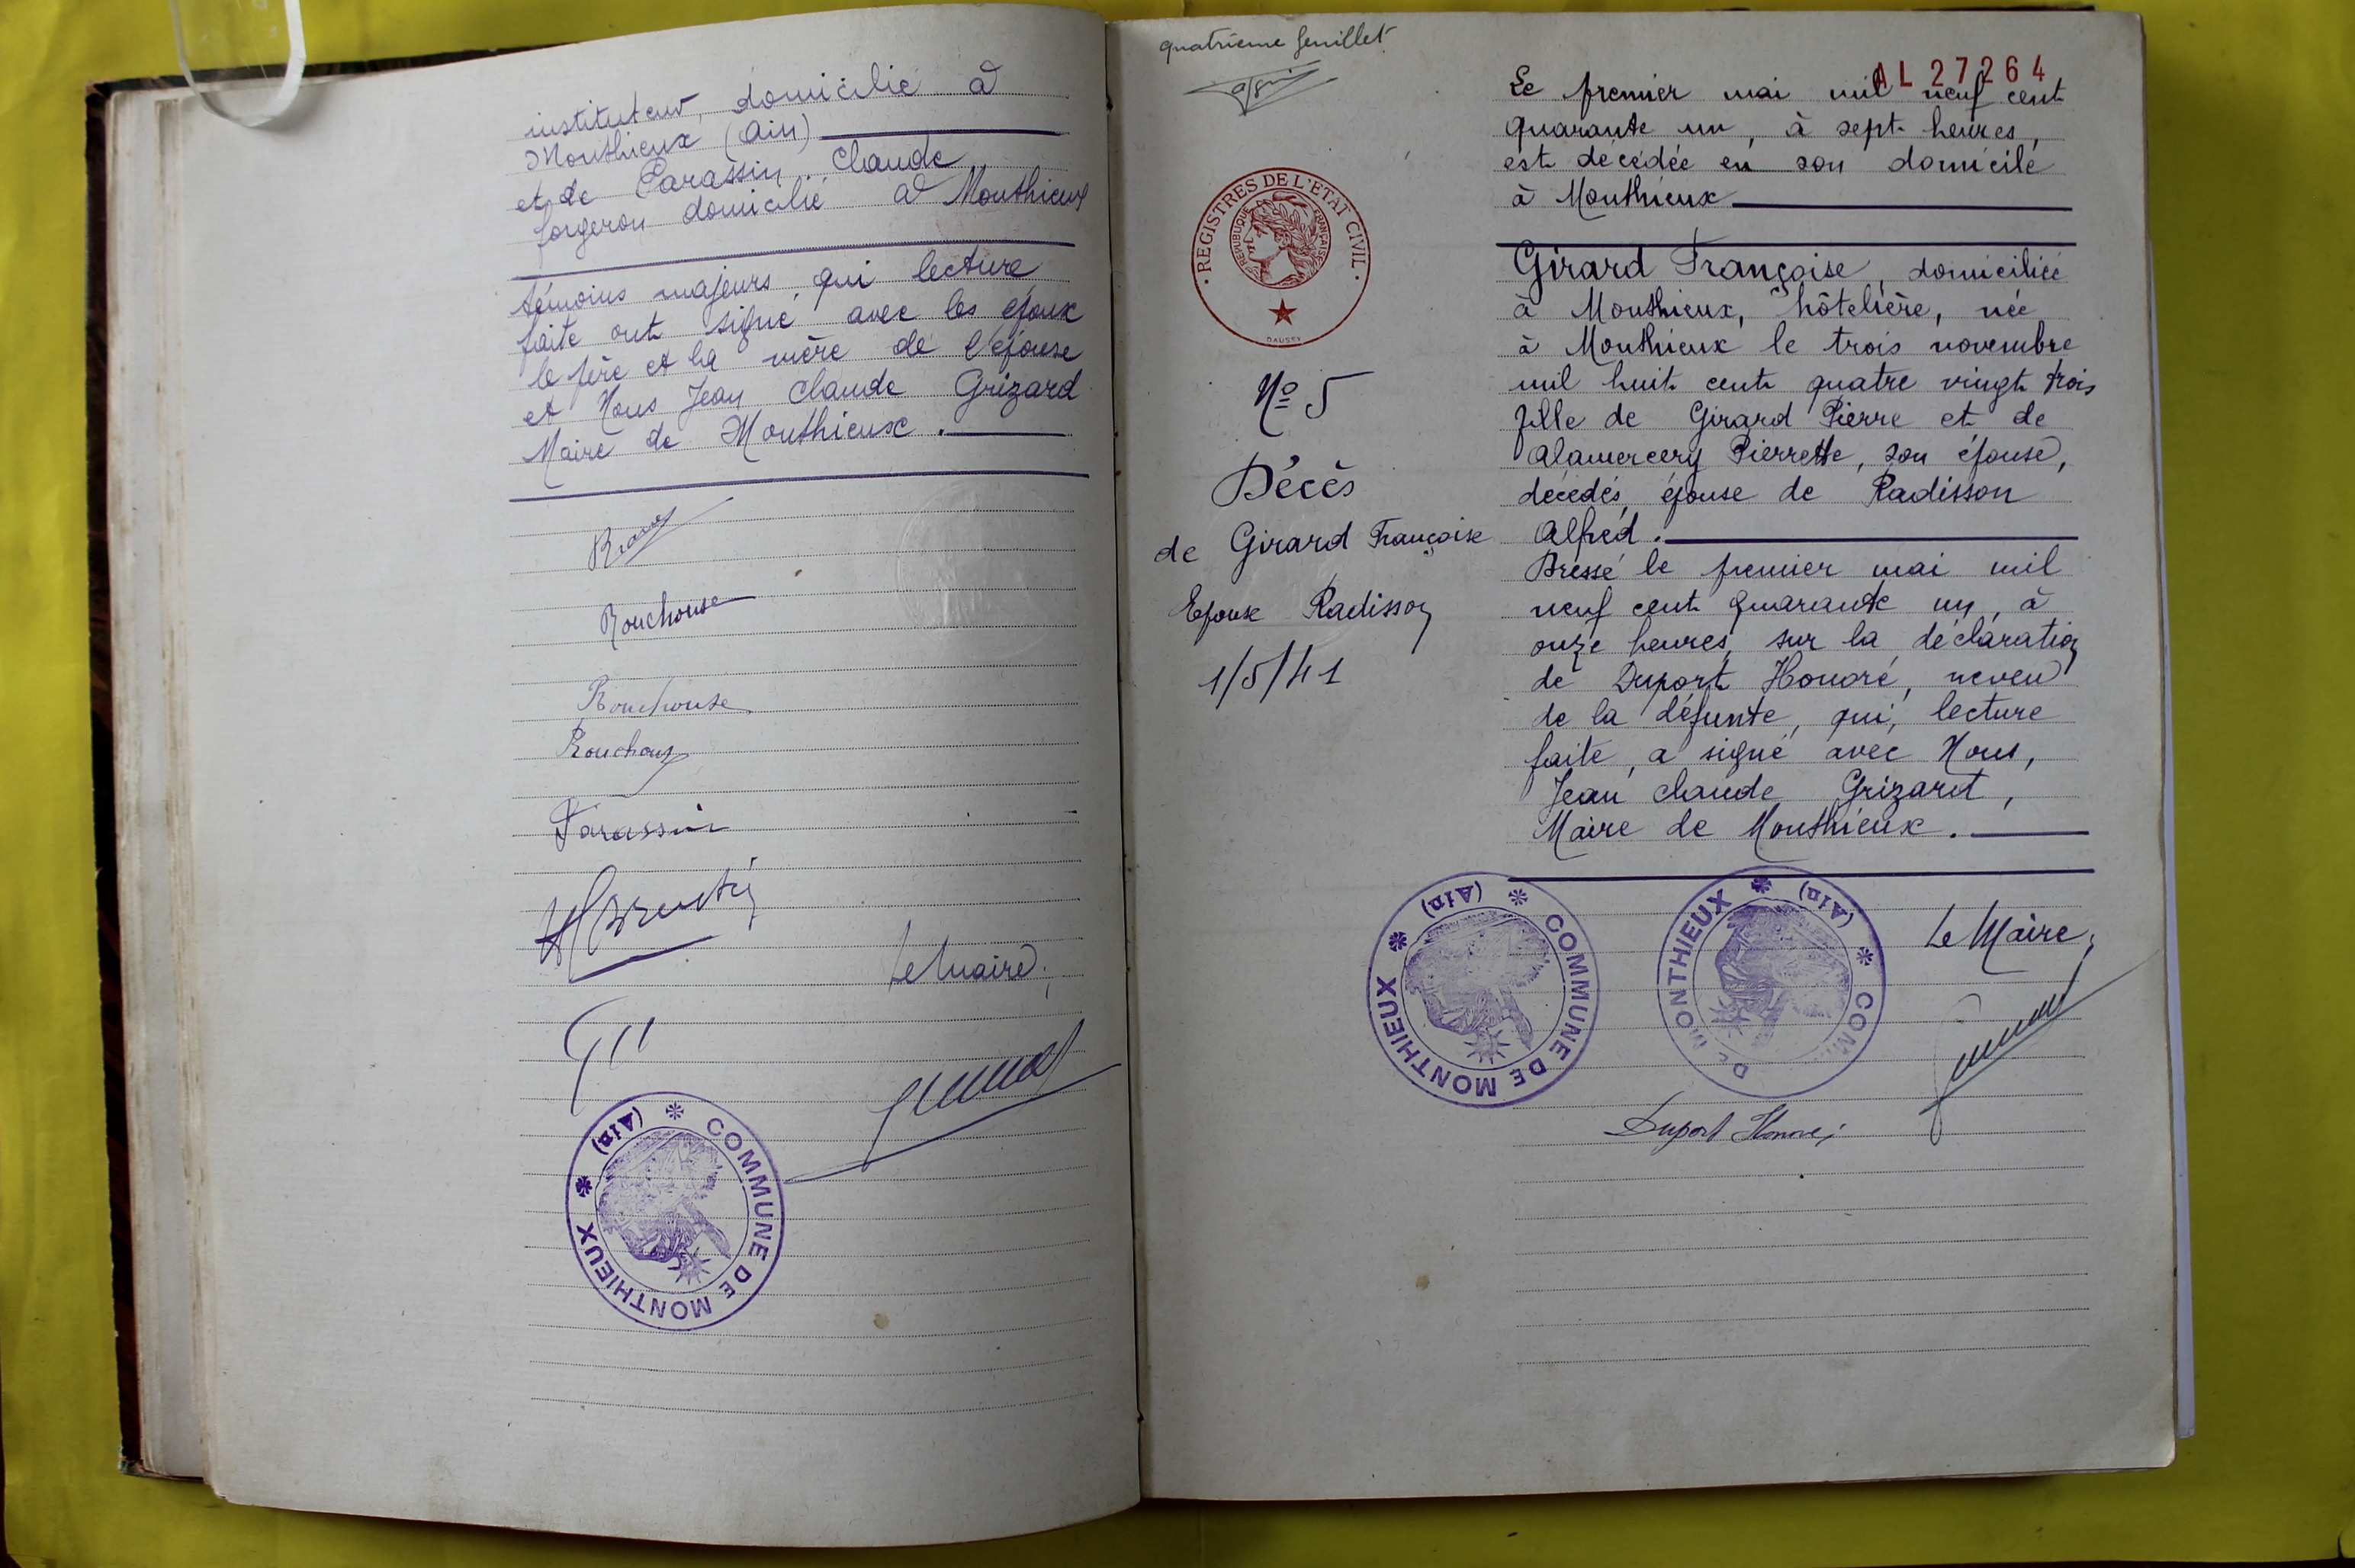 instituteur, domicilié à
Monthieux (Ain)
et de Parassin Claude
forgeron domicilié à Monthieux
témoins majeurs qui lecture
faite ont signé avec les époux
le père et la mère de l'épouse
et Nous Jean Claude Grizard
Maire de Monthieux.
Rouchouse
Rouchouse
Parassin
Le Maire,
COMMUNE DE MONTHIEUX (Ain)
quatrième feuillet
REGISTRES DE L'ETAT CIVIL
REPUBLIQUE FRANÇAISE
DAUSSY
No 5
Décès
de Girard Françoise
Epoux Radisson
1/5/41
AL 27264
Le premier mai mil neuf cent
quarante un, à sept heures,
est décédée en son domicile
à Monthieux
Girard Françoise, domiciliée
à Monthieux, hôtelière, née
à Monthieux le trois novembre
mil huit cent quatre vingt trois
fille de Girard Pierre et de
Alamercery Pierrette, son épouse,
décédés, épouse de Radisson
Alfred.
Dressé le premier mai mil
neuf cent quarante un, à
onze heures, sur la déclaration
de Duport Honoré, neveu
de la défunte, qui, lecture
faite, a signé avec Nous,
Jean Claude Grizard,
Maire de Monthieux.
COMMUNE DE MONTHIEUX (Ain)
COM DE MONTHIEUX (Ain)
Le Maire,
Duport Honoré